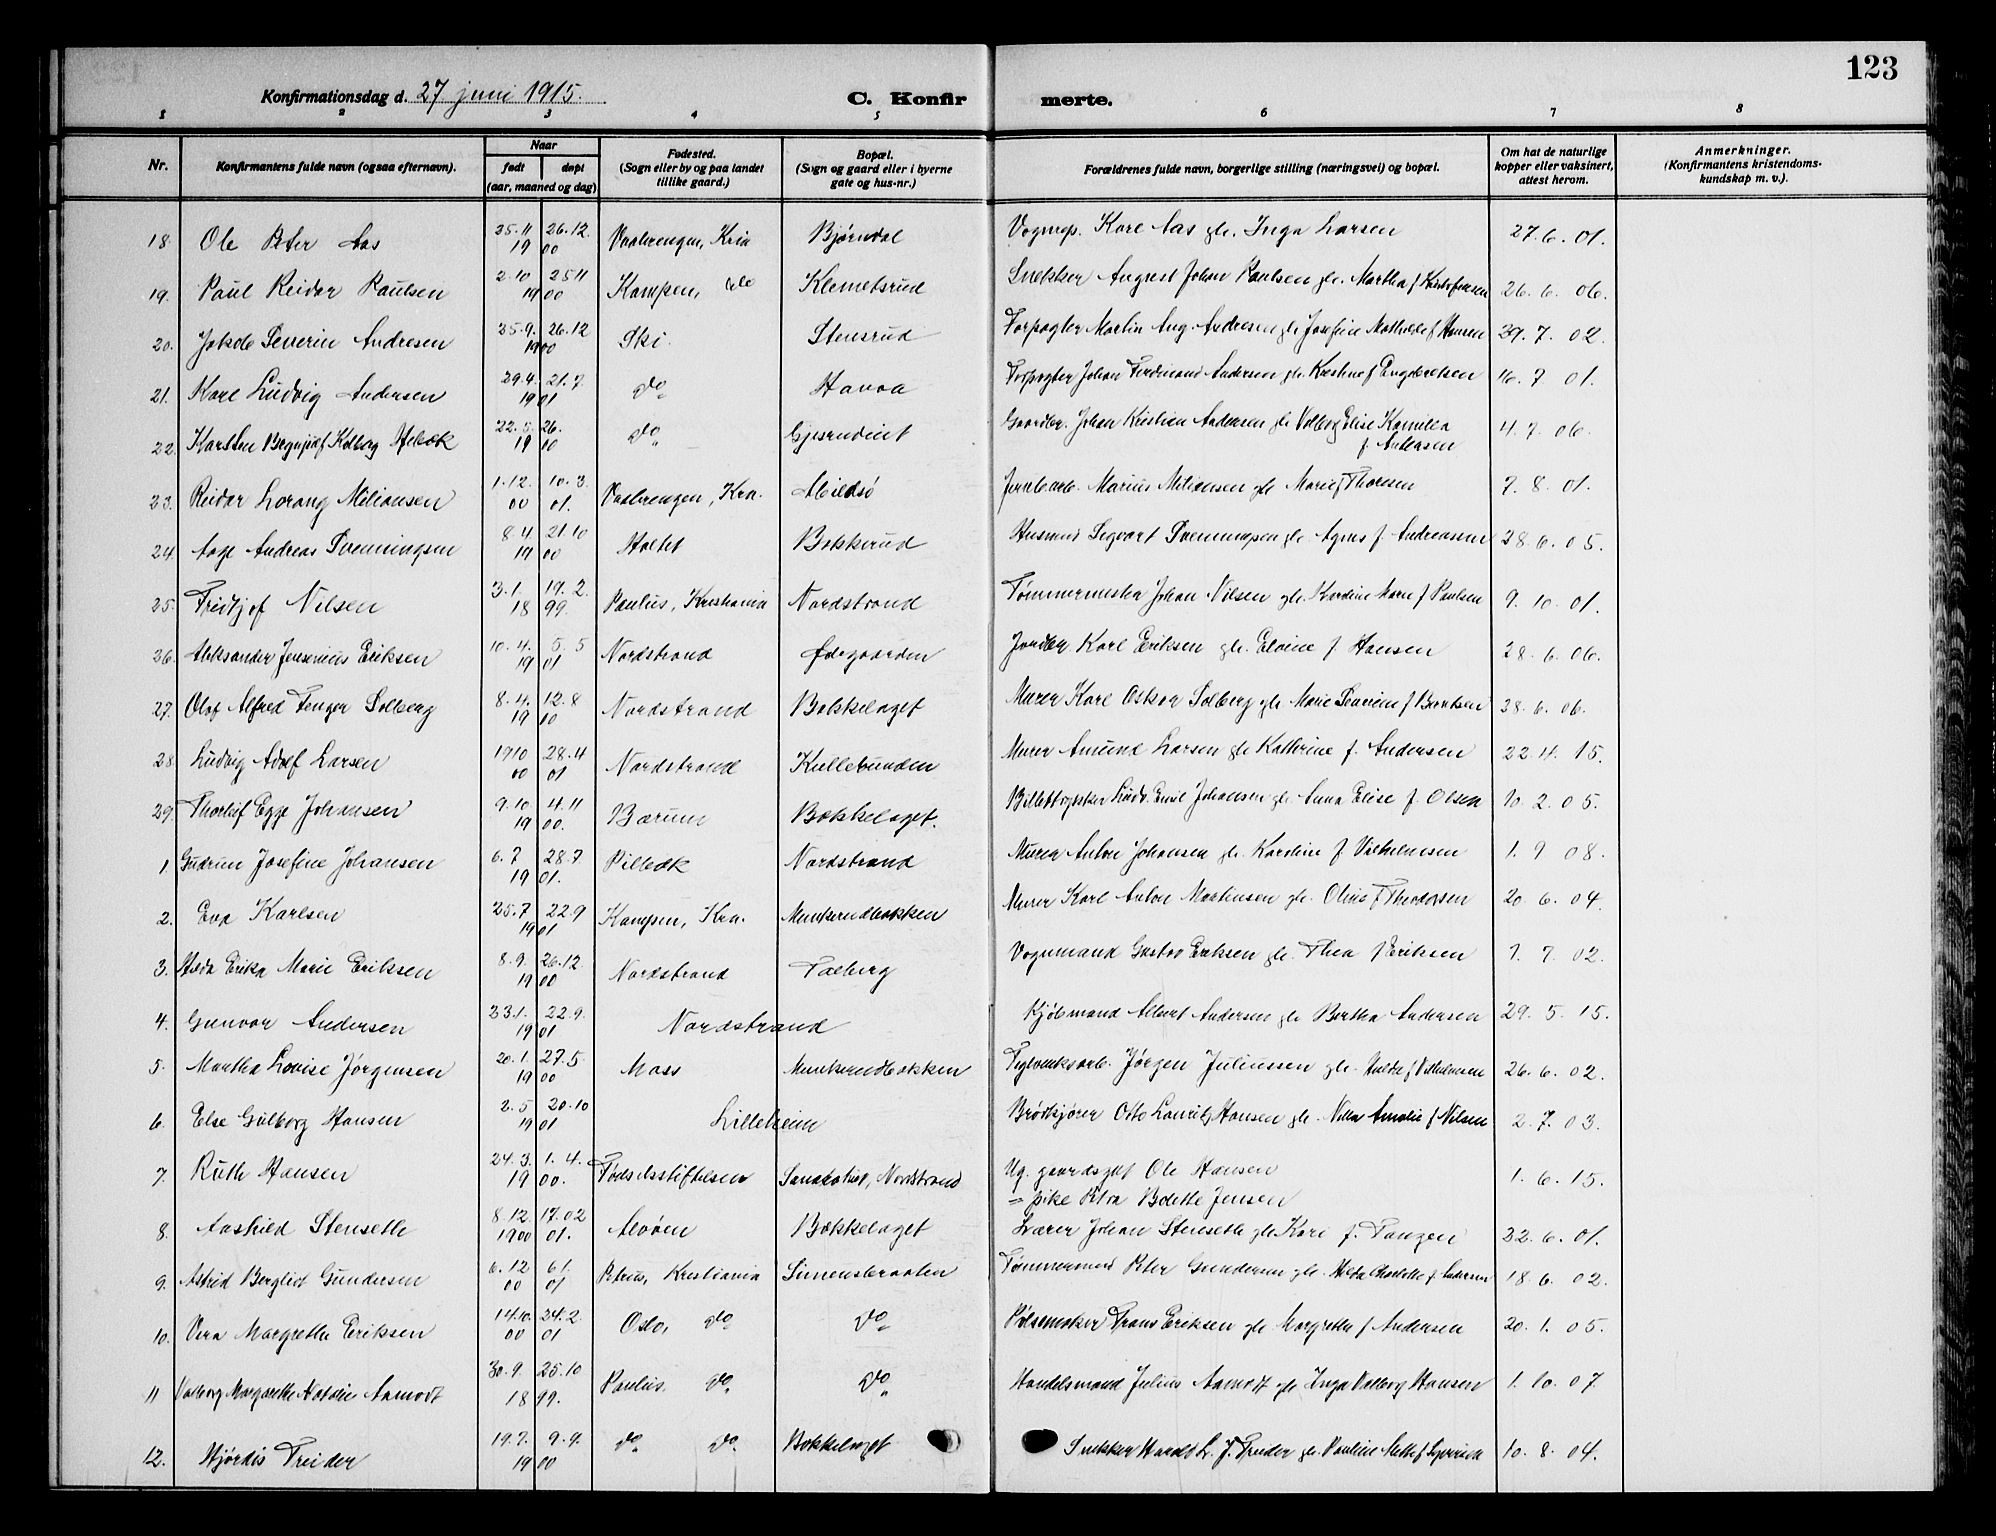 123
Konfirmationsdag d. 27 juni 1915. C. Konfirmerte.
1 2 3 4 5 6 7 8
Nr. Konfirmantens fulde navn (ogsaa efternavn). Naar født døpt (aar, maaned og dag) Fødested. (Sogn eller by og paa landet tillike gaard.) Bopæl. (Sogn og gaard eller i byerne gate og hus-nr.) Forældrenes fulde navn, borgerlige stilling (næringsvei) og bopæl. Om hat de naturlige kopper eller vaksinert, attest herom. Anmerkninger. (Konfirmantens kristendoms-kundskap m. v.).
18. Ole Peter Aas 25.11 26.12. 1900 Vaalerengen, Kria Bjørndal Vognmp. Karl Aas glv. Inga Larsen 27.6.01.
19. Paul Reidar Paulsen 2.10 25.11 1900 Kampen, do Klemetsrud Snekker August Johan Paulsen glv. Martha f Kristofersen 26.6.06.
20. Jakob Severin Andresen 25.9. 26.12 1900 Ski. Stensrud Forpagter Martin Aug. Andresen glv Josefine Mathilde f Hansen 29.7.02.
21. Karl Ludvig Andersen 29.4. 21.7 1901 do Havaa Forpagter Johan Ferdinand Andersen glv. Kristine f Engebretsen 16.7.01.
22. Karsten 22.5. 26. 1900 do Gjersrud Gaardbr. Johan Kristian Andersen glv Valborg Elise Kamilla f. Andersen 4.7.06.
23. Reidar Lorang Miliansen 1.12. 00 10.3. 01. Vaalerengen, Kra. Abildsø Jernb.arb. Marius Miliansen glv Marie f Thoresen 7.8.01.
24. Aage Andreas Svenningsen 8.4. 21.10 1900 Holtet Bekkerud Husmand Segvart Svenningsen glv. Agnes f. Andreassen 28.6.05.
25. Fridtjof Nilsen 3.1. 19.2. 1899. Paulus, Kristiania Nordstrand Tømmermester Johan Nilsen glv. Kardine Marie f Paulsen 9.10.01.
26. Aleksander Jensenius Eriksen 10.4. 5.5 1901 Nordstrand Ødegaarden Jordbr Karl Eriksen glv. Elvine f. Hansen 28.6.06.
27. Olaf Alfred Fenger Solberg 8.4. 12.8 1900 Nordstrand Bækkelaget Murer Karl Oskar Solberg glv. Marie Severine f Berntsen 28.6.06.
28. Ludvig Adolf Larsen 19.10 00 28.4 01 Nordstrand Kullebunden Murer Amund Larsen glv Kathrine f. Andersen 22.4.15.
29. Thorleif Egge Johansen 9.10 4.11 1900. Bærum Bækkelaget. Billettbygssker Ludv. Emil Johansen glv. Anna Elise f. Olsen 10.2.05.
1. Gudrun Josefine Johansen 6.7 28.7 1901. Pilbæk Nordstrand Murer Anton Johansen glv. Karoline f Vilhelmsen 1.9.08.
2. Eva Karlsen 25.7 22.9 1901 Kampen, Kra. Munkerudbakken Murer Karl Anton Martinsen glv. Oline f Theodorsen 20.6.04.
3. Hilda Erika Marie Eriksen 8.9. 26.12. 1900 Nordstrand Toeberg Vognmand Gustav Eriksen glv. Thea f Eriksen 7.7.02.
4. Gunvor Andersen 23.1. 22.9. 1901 Nordstrand Kjøbmand Albert Andersen glv Bertha Andersen 29.5.15.
5. Martha Lovise Jørgensen 20.1. 27.5 1900 Moss Munkerudbakken Teglverksarb. Jørgen Juliussen glv. Hulda f Vilhelmsen 26.6.02.
6. Else Gulborg Hansen 2.5 20.10 1901 Lilleheim Brødkjører Otto Lauritz Hansen glv. Milla Amalie f. Nilsen 2.7.03.
7. Ruth Hansen 24.3. 1.4. 1900. Fødselsstiftelsen Sanatoriet, Nordstrand Ug. gaardsgut Ole Hansen
= pike Petra Bolette Jensen 1.6.15.
8. Aashild Stenseth 8.12. 1900 17.02 01. Alvøen Bækkelaget Lærer Johan Stenseth glv Kari f. Tangen 22.6.01.
9. Astrid Bergliot Gundersen 6.12 00 6.1. 01 Petrus, Kristiania Simensbraaten Tømmermand Peter Gundersen glv. Hilda Charlotte f. Andersen 18.6.02.
10. Vera Margrethe Eriksen 14.10. 00 24.2. 01 Oslo, do do Pølsemaker Frans Eriksen glv Margrethe f Andersen 20.1.05.
11 Valborg Margarethe Natalie Aamodt 30.9. 25.10 1899. Paulus. do do Handelsmand Julius Aamodt glv Inga Valborg Hansen 1.10.07
12. Hjørdis Treider 19.7. 9.9. 1900 do do Bækkelaget Snekker Harald L. F. Treider glv. Pauline Mette f 10.8.04.